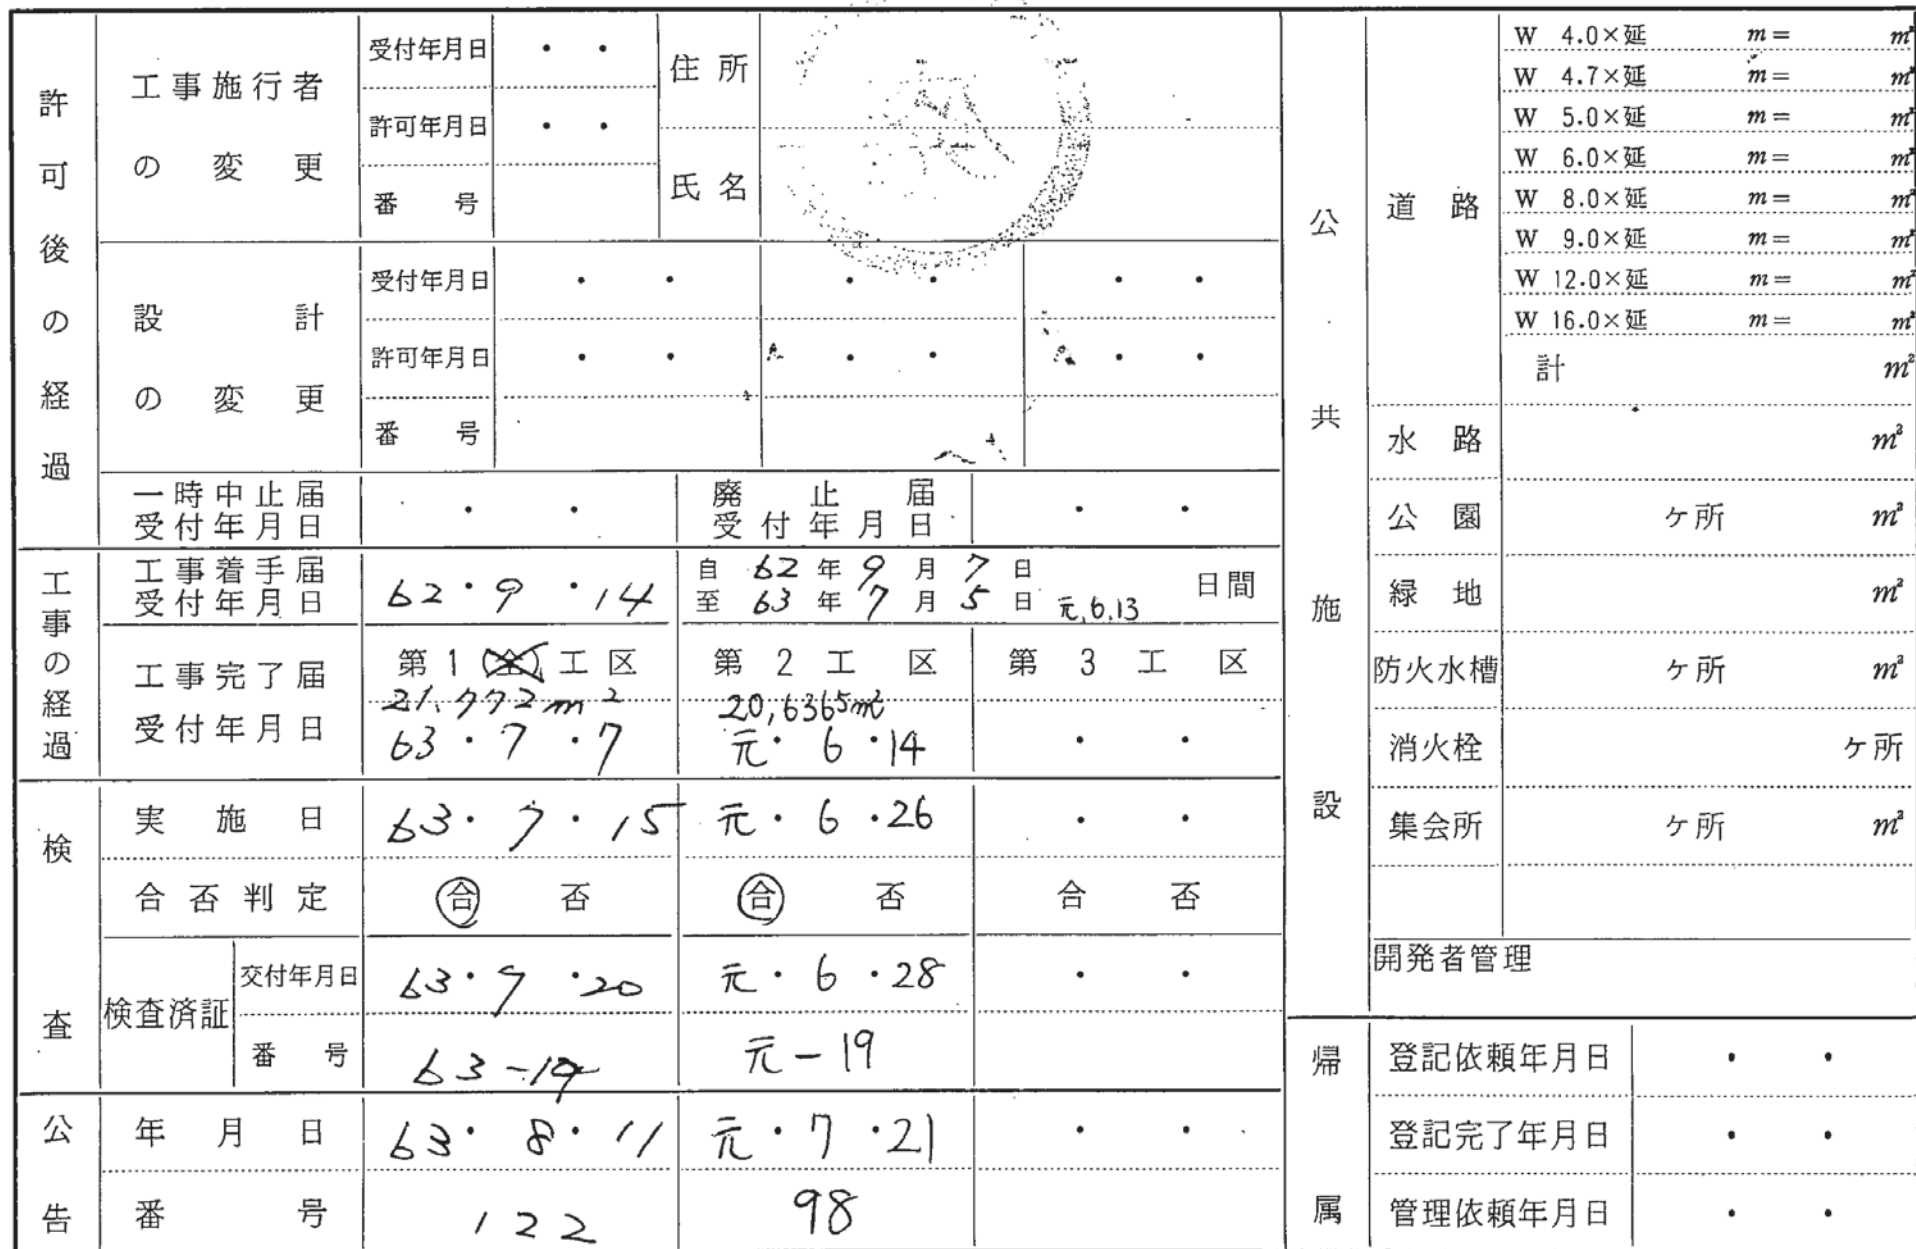 許可後の経過
工事施行者の変更
受付年月日 ・ ・
許可年月日 ・ ・
番号
住所
氏名
設計の変更
受付年月日 ・ ・ ・ ・ ・ ・
許可年月日 ・ ・ ・ ・ ・ ・
番号
一時中止届受付年月日 ・ ・
廃止届受付年月日 ・ ・
工事の経過
工事着手届受付年月日 62・9・14
自 62年9月7日
至 63年7月5日 元.6.13 日間
工事完了届受付年月日
第1(全)工区 第2工区 第3工区
21,772m² 20,6365m²
63・7・7 元・6・14 ・ ・
検査
実施日 63・7・15 元・6・26 ・ ・
合否判定 合 否 合 否 合 否
検査済証
交付年月日 63・7・20 元・6・28 ・ ・
番号 63-19 元-19
公告
年月日 63・8・11 元・7・21 ・ ・
番号 122 98
公共施設
道路
W 4.0×延 m= m²
W 4.7×延 m= m²
W 5.0×延 m= m²
W 6.0×延 m= m²
W 8.0×延 m= m²
W 9.0×延 m= m²
W 12.0×延 m= m²
W 16.0×延 m= m²
計 m²
水路 m²
公園 ケ所 m²
緑地 m²
防火水槽 ケ所 m²
消火栓 ケ所
集会所 ケ所 m²
開発者管理
帰属
登記依頼年月日 ・ ・
登記完了年月日 ・ ・
管理依頼年月日 ・ ・